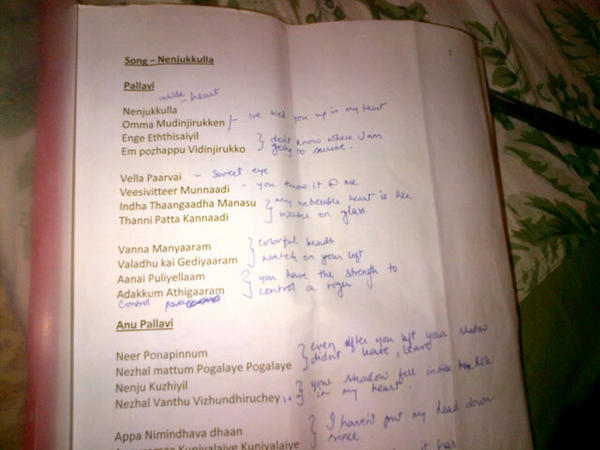 Song – Nenjukkulla
Pallavi
inside - heart
Nenjukkulla
Omma Mudinjirukken - I've tied you up in my heart
Enge Eththisaiyil } don't know where I am
Em pozhappu Vidinjirukko going to survive.
Vella Paarvai - Sweet eye
Veesivitteer Munnaadi - you threw it @ me
Indha Thaangaadha Manasu } my unbearable heart is like
Thanni Patta Kannaadi water on glass
Vanna Manyaaram } colorful beads
Valadhu kai Gediyaaram watch on your left
Aanai Puliyellaam } you have the strength to
Adakkum Athigaaram control a tiger
Control
Anu Pallavi
Neer Ponapinnum } even after you left your shadow
Nezhal mattum Pogalaye Pogalaye didn't leave, leave
Nenju Kuzhiyil } your shadow fell inside
Nezhal Vanthu Vizhundhiruchey in my heart.
Appa Nimindhava dhaan } I haven't put my head down
Kuniyalaiye Kuniyalaiye since
it has